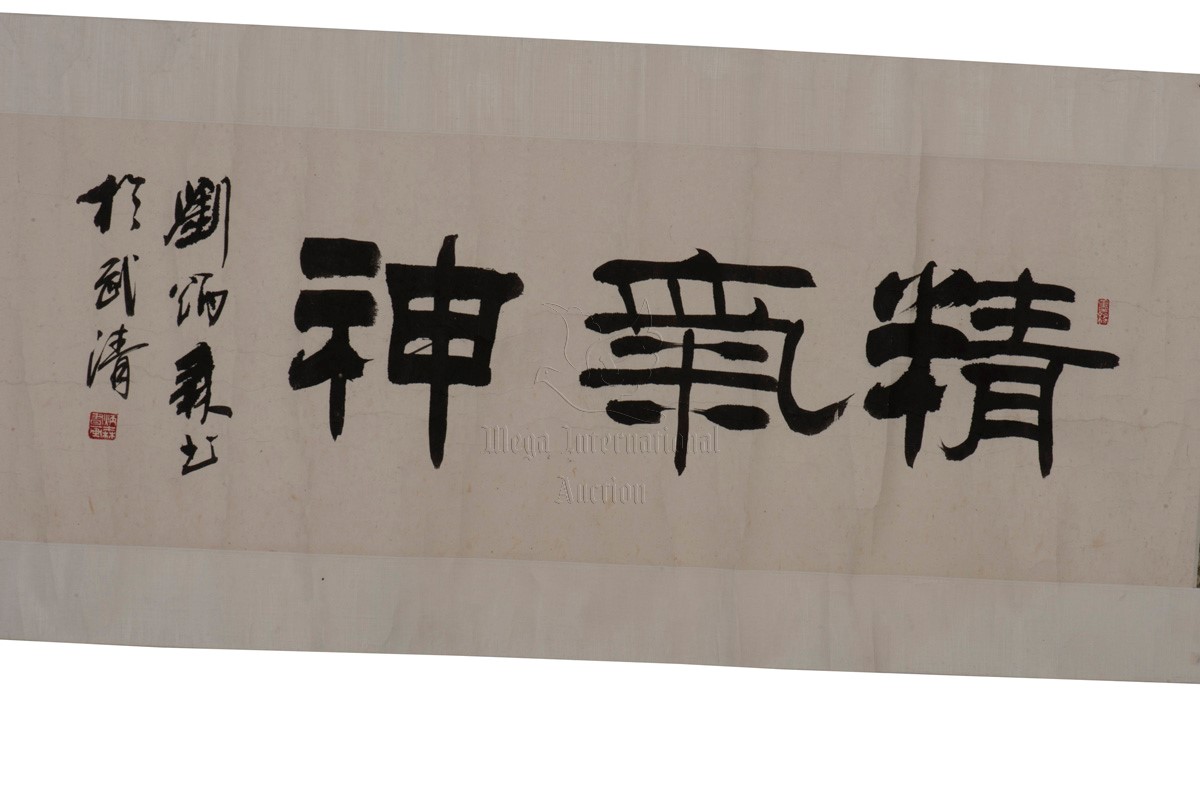 精氣神
劉炳森書
於武清
Mega International
Auction